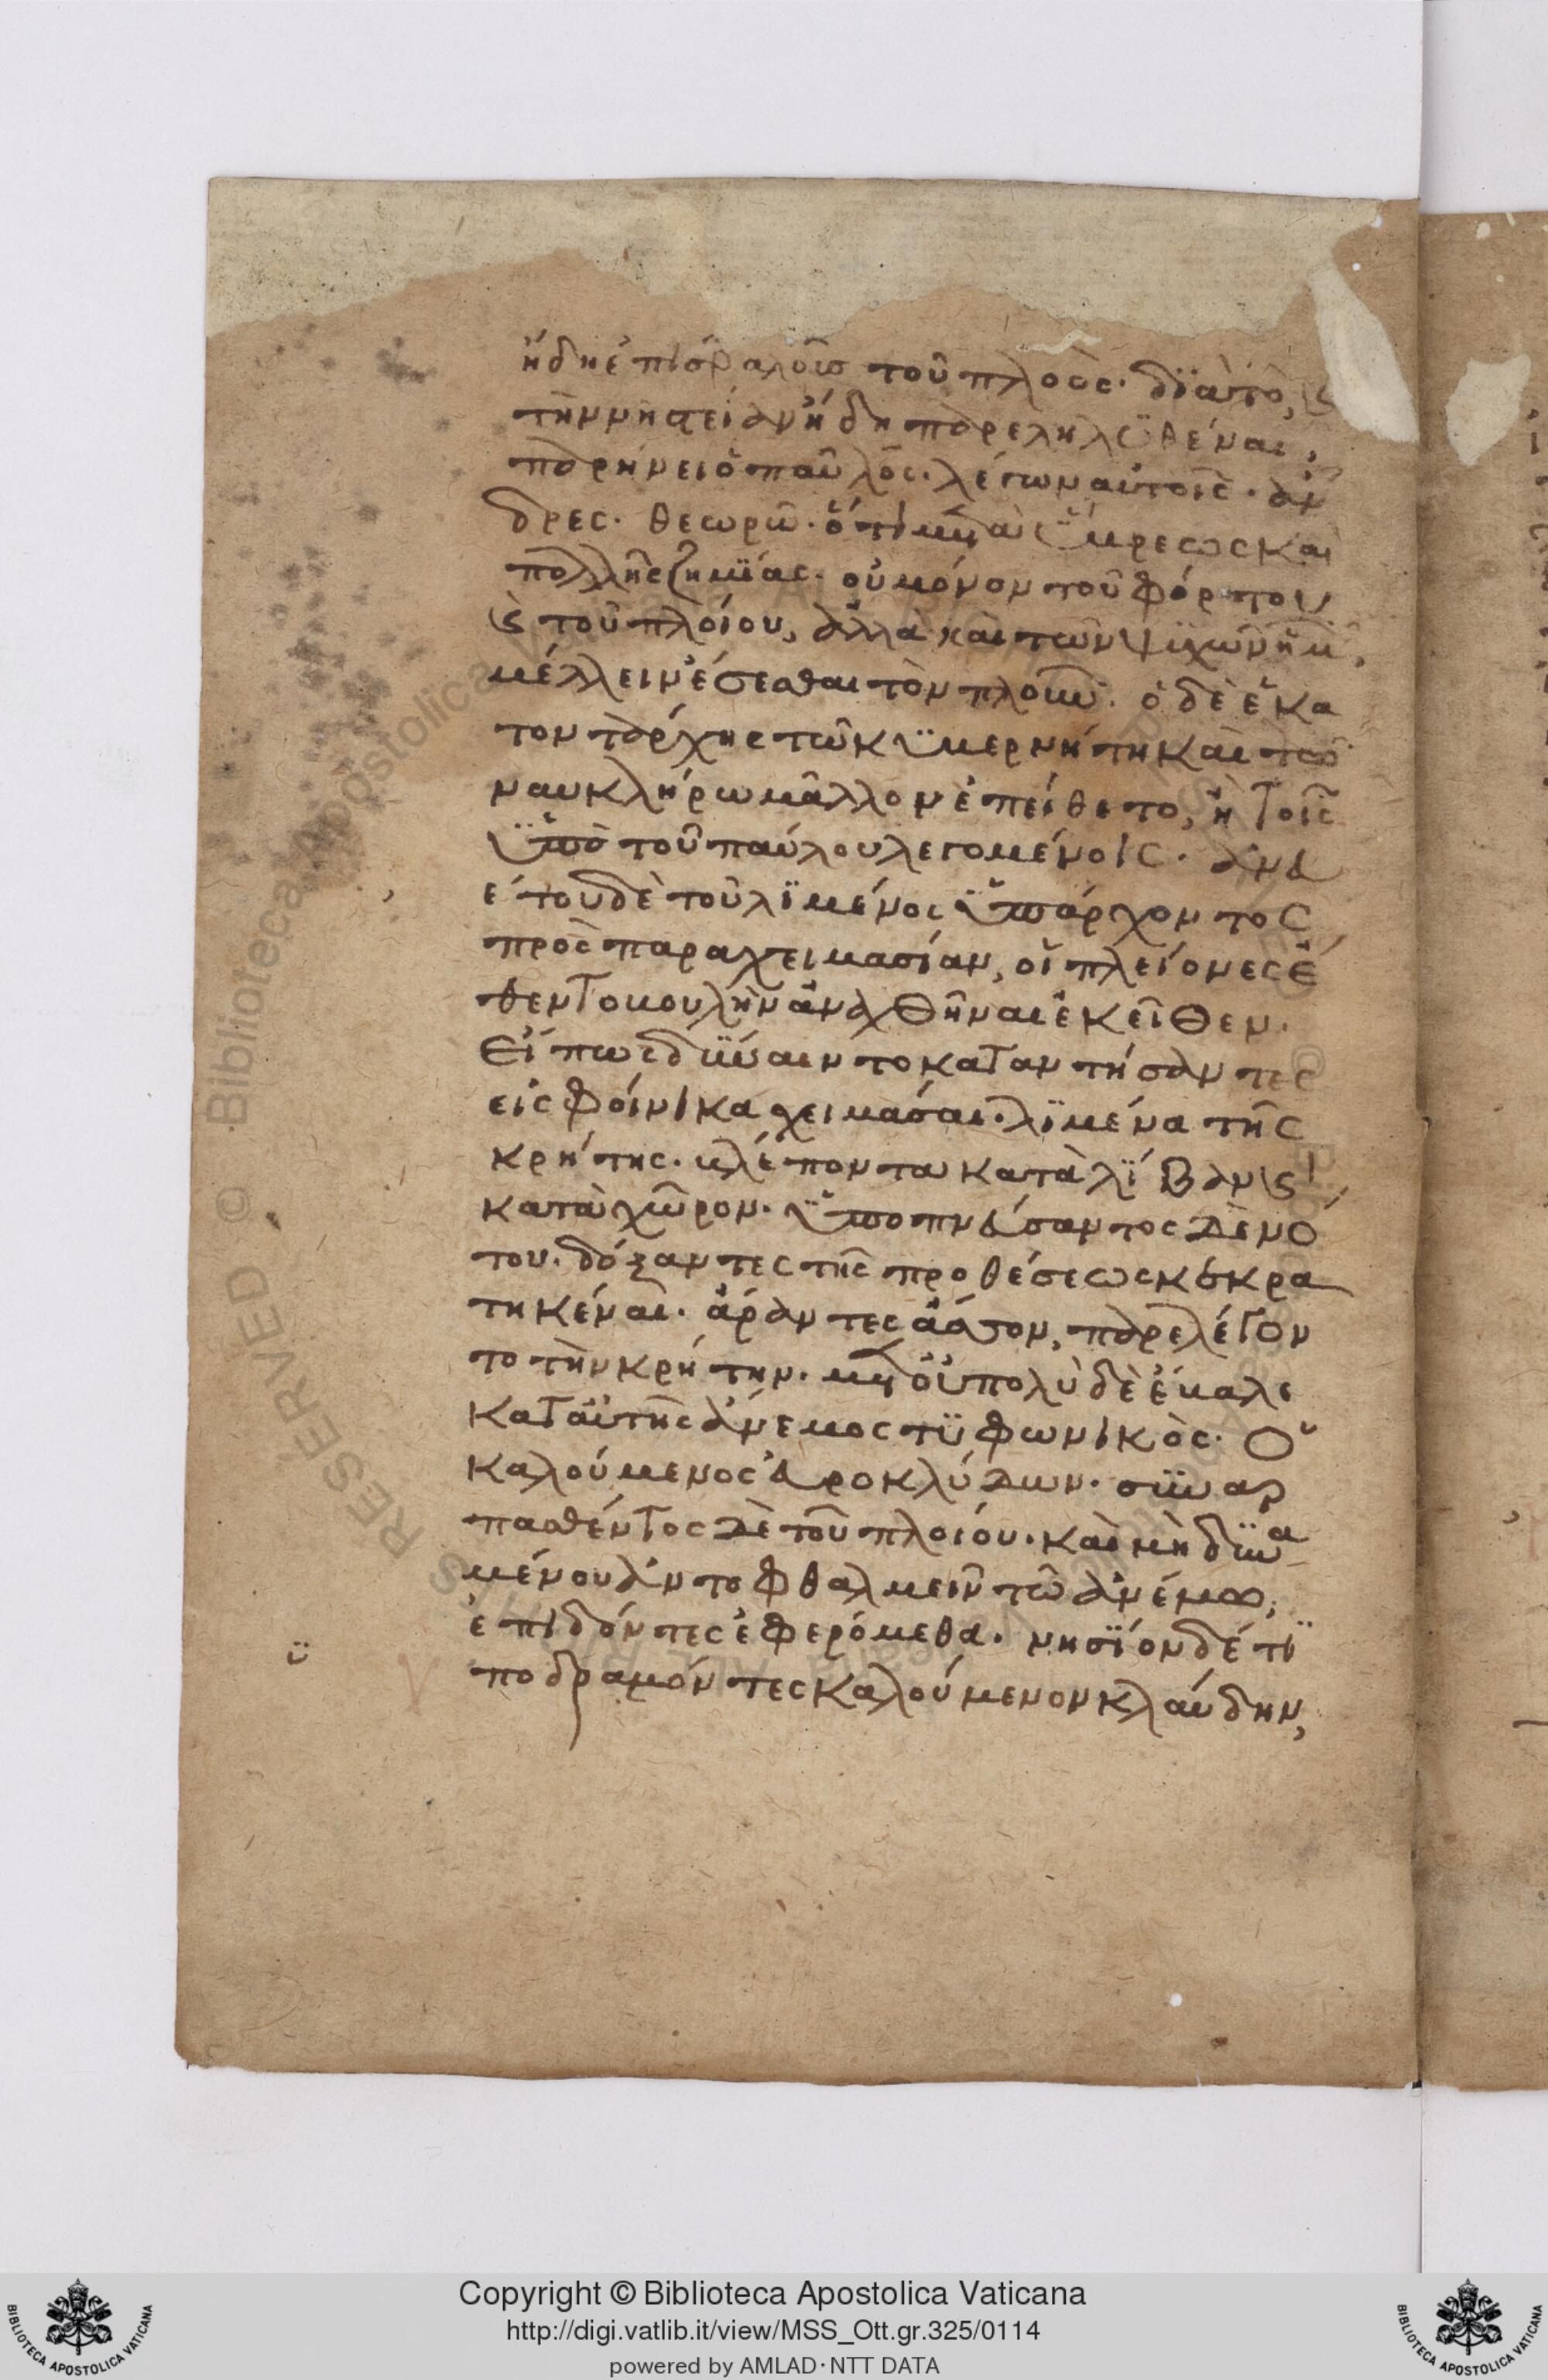 ἤδη ἐπισφαλοῦς τοῦ πλοὸς· διὰ τὸ, ϗ
τὴν νηστείαν ἤδη παρεληλϋθέναι,
παρήνει ὁ παῦλος· λέγων αὐτοῖς· ἄν
δρες· θεωρῶ· ὅτι μετὰ ὕβρεως καὶ
πολλῆς ζημΐας· οὐ μόνον τοῦ φόρτου
ϗ τοῦ πλοίου, ἀλλὰ καὶ τῶν ψϋχῶν ἡμ
μέλλειν ἔσεσθαι τὸν πλοῦν· ὁ δὲ ἑκα
τοντάρχης τῶ κϋβερνήτη καὶ τῶ
ναυκλήρω μᾶλλον ἐπείθετο, ἢ τοῖς
ὑπὸ τοῦ παύλου λεγομένοις· ἀνευ
έτου δὲ τοῦ λϊμένος ὑπάρχοντος
πρὸς παραχειμασίαν, οἱ πλείονες ἔ
θεντο βουλὴν ἀναχθῆναι ἐκεῖθεν·
Εἴ πως δύναιντο καταντήσαντες
εἰς φοίνικα χειμάσαι· λϊμένα τῆς
κρήτης· βλέποντα κατὰ λΐβαν ϗ
κατὰ χῶρον· ὑποπνεύσαντος δὲ νό
του· δόξαντες τῆς προθέσεως κεκρα
τηκέναι· ἄραντες ἆσσον, παρελέγον
το τὴν κρήτην· μετ οὐ πολὺ δὲ ἔβαλε
κατ αὐτῆς ἄνεμος τϋφωνικὸς· Ὁ
καλούμενος εὐροκλύδων· συναρ
πασθέντος δὲ τοῦ πλοίου· καὶ μὴ δυνα
μένου ἀντοφθαλμεῖν τῶ ἀνέμω,
ἐπιδόντες ἐφερόμεθα· νησΐον δέ τι
ϋ ποδραμόντες καλούμενον κλαύδην,
Copyright © Biblioteca Apostolica Vaticana
http://digi.vatlib.it/view/MSS_Ott.gr.325/0114
powered by AMLAD·NTT DATA